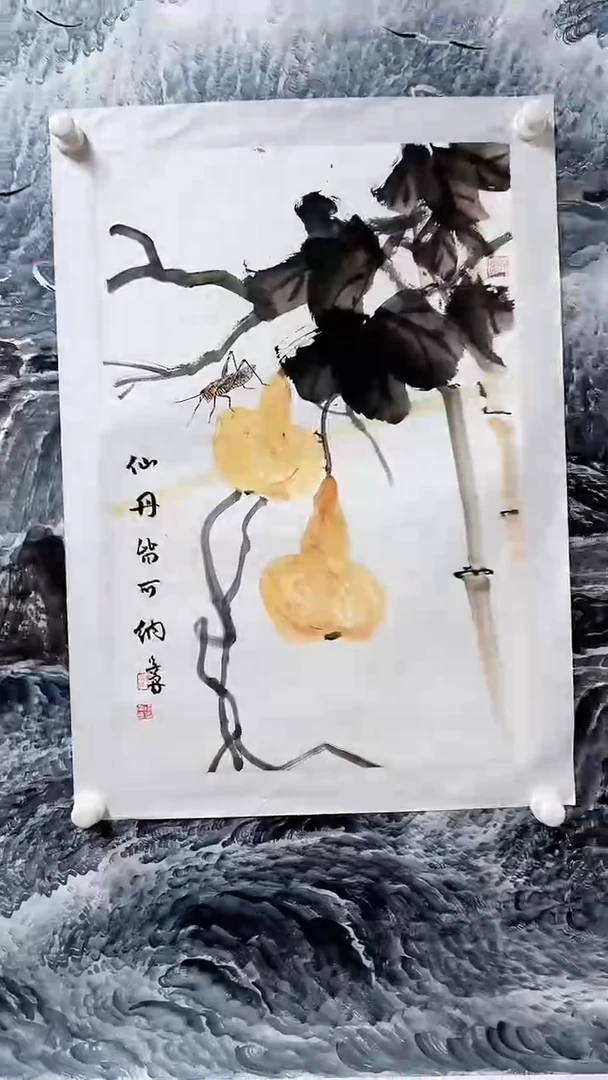 仙丹皆可纳